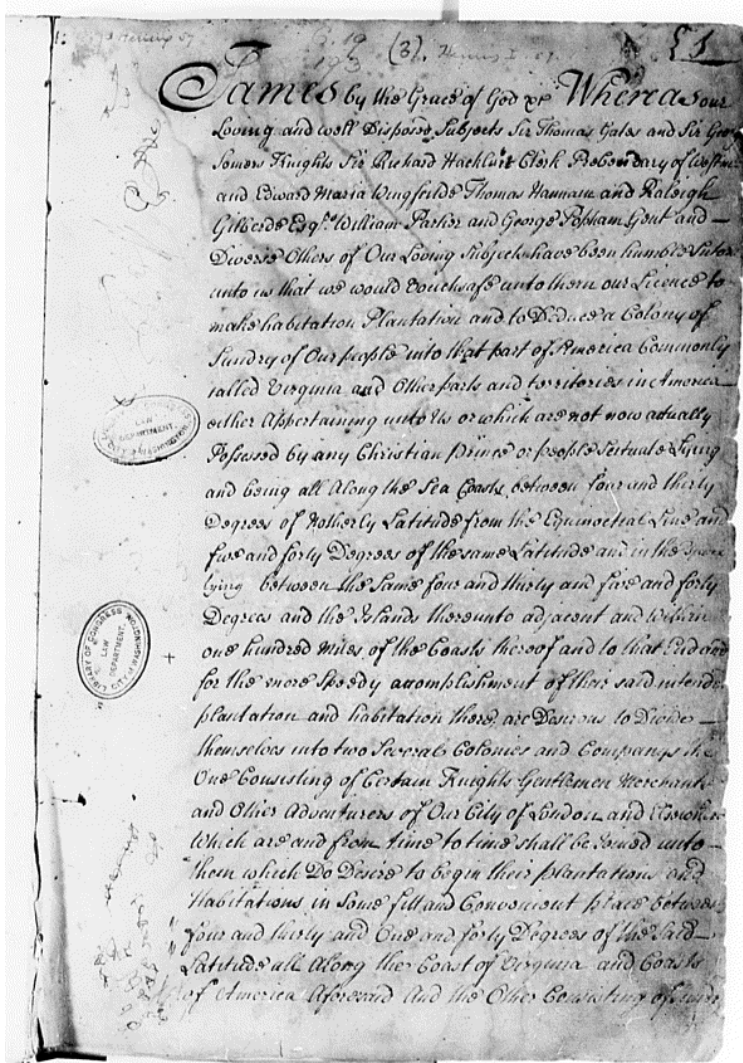 (3).
James by the Grace of God &c Whereas our
Loving and well Disposed Subjects Sir Thomas Gates and Sir Geor
Somers Knights Sir Richard Hackluit Clerk Prebendary of Westm
and Edward Maria Wingfeilde Thomas Hannam and Raleigh
Gilberde Esqrs. William Parker and George Popham Gent and
Diverse Others of Our Loving Subjects have been humble Sutors
unto us that we would vouchsafe unto them our Licence to
make habitation Plantation and to Deduce a Colony of
Sundry of Our people into that part of America Commonly
called Virginia and Other parts and territories in America
either Appertaining unto Us or which are not now actually
Possessed by any Christian Prince or people Scituate Lying
and being all Along the Sea Coasts between four and thirty
Degrees of Notherly Latitude from the Equinoctial Line and
five and forty Degrees of the same Latitude and in the
lying between the Same four and thirty and five and forty
Degrees and the Islands thereunto adjacent and within
one hundred Miles of the Coasts thereof and to that End and
for the more Speedy accomplishment of their said intende
plantation and habitation there are Desirous to Divide
themselves into two Several Colonies and Companys the
One Consisting of Certain Knights Gentlemen Merchants
and Other Adventurers of Our City of London and Elsewhere
Which are and from time to time shall be Joined unto
them which Do Desire to begin their plantations and
Habitations in Some fitt and Convenient place between
four and thirty and One and forty Degrees of the Said
Latitude all Along the Coast of Virginia and Coasts
of America Aforesaid And the Other Consisting of
LAW
DEPARTMENT.
CITY of WASHINGTON
LIBRARY OF CONGRESS
LAW
DEPARTMENT.
CITY of WASHINGTON